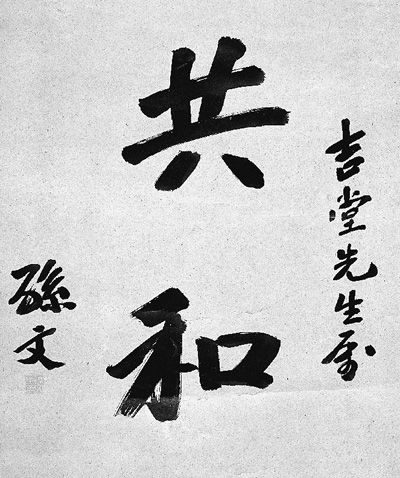 吉堂先生屬
共和
孫文